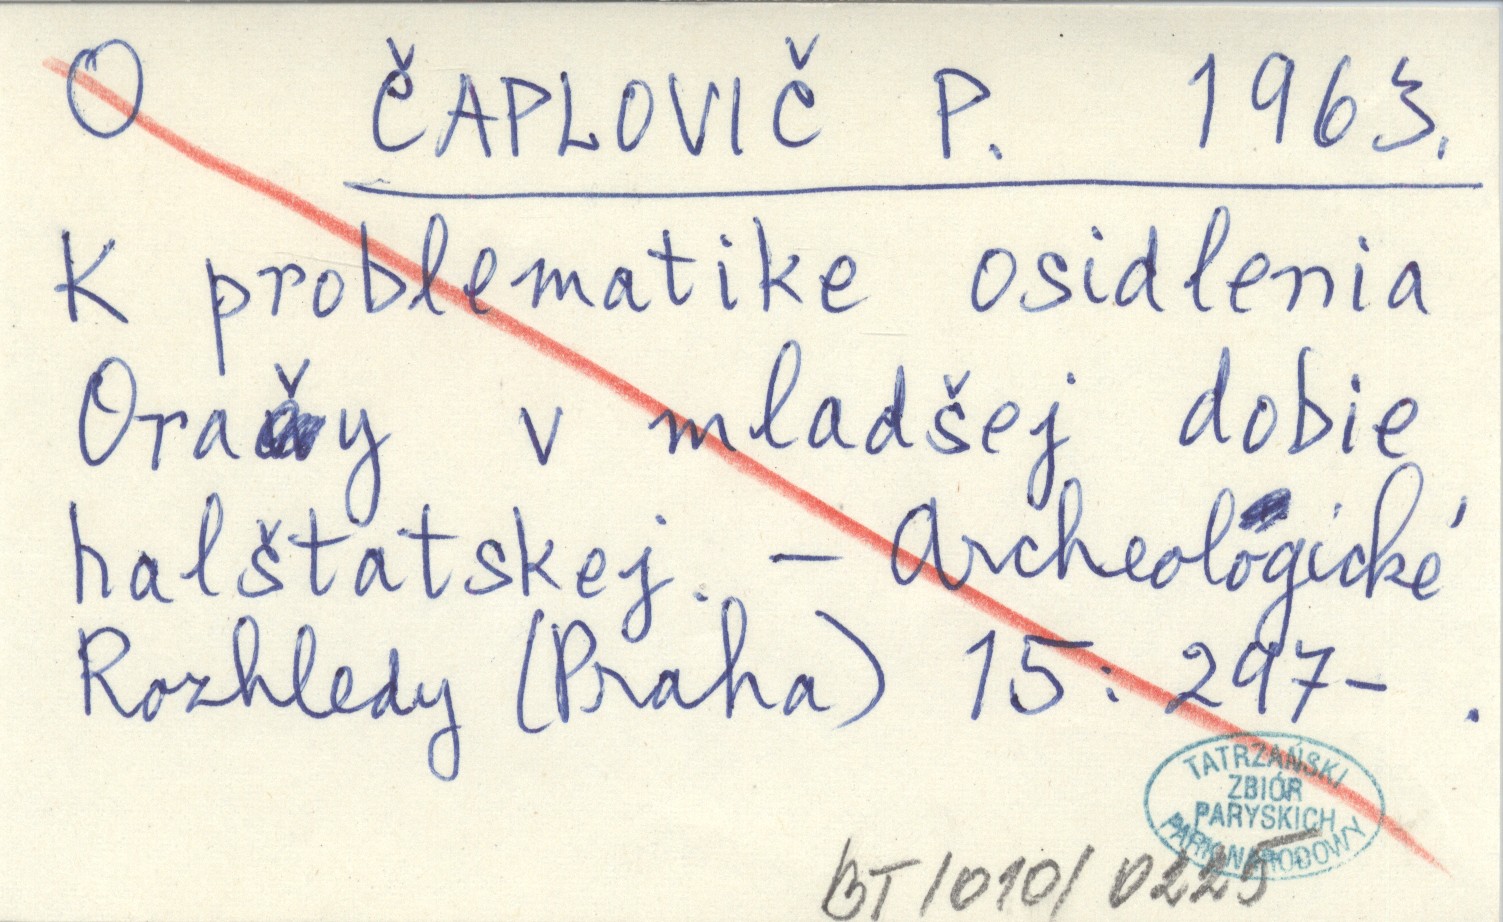 O ČAPLOVIČ P. 1963.
K problematike osidlenia
Oravy v mladšej dobie
halštatskej. - Archeologické
Rozhledy (Praha) 15: 297- .
TATRZAŃSKI
ZBIÓR
PARYSKICH
PARK NARODOWY
BT/010/0225